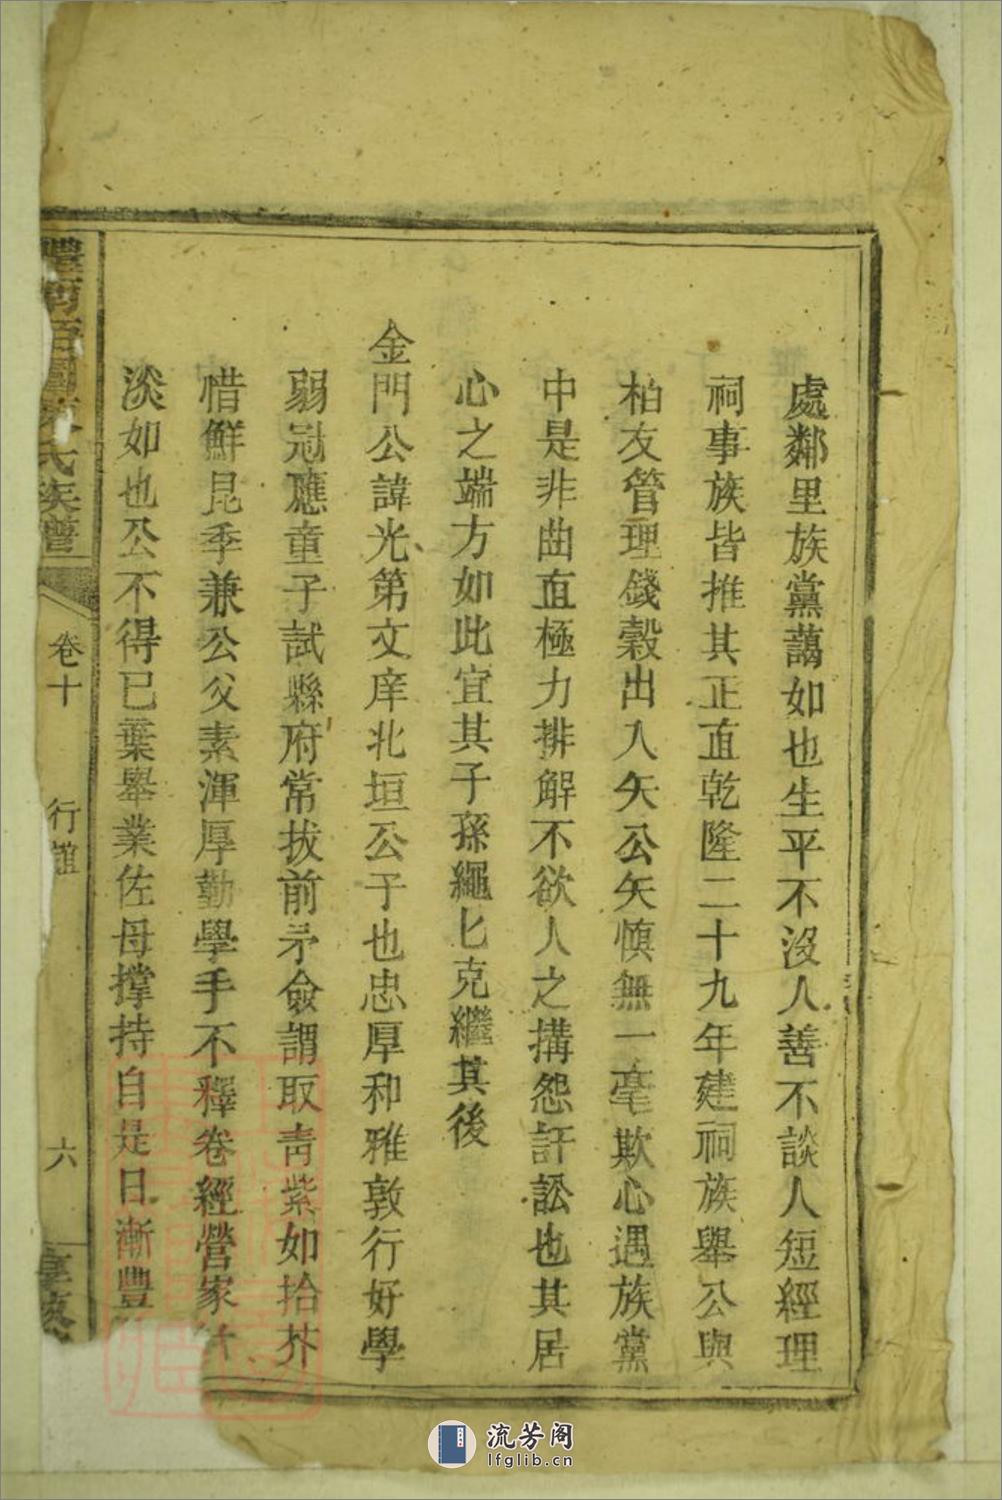 處鄰里族黨藹如也生平不沒人善不談人短經理
祠事族皆推其正直乾隆二十九年建祠族舉公與
柏友管理錢穀出入矢公矢慎無一毫欺心遇族黨
中是非曲直極力排解不欲人之搆怨訐訟也其居
心之端方如此宜其子孫繩匕克繼其後
金門公諱光第文庠北垣公子也忠厚和雅敦行好學
弱冠應童子試縣府常拔前矛僉謂取青紫如拾芥
惜鮮昆季兼公父素渾厚勤學手不釋卷經營家計
淡如也公不得已葉舉業佐母撐持自是日漸豐
氏族譜
卷十
行誼
六
流芳阁
lfglib.cn